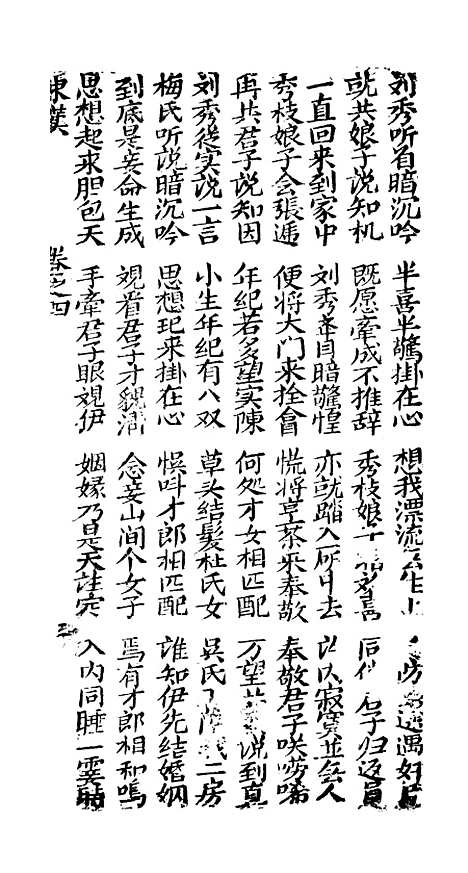 刘秀听着暗沉吟 半喜半驚掛在心 想我漂流 遇好
就共娘子说知机 既愿牽成不推辞 秀枝娘子 君子归返員
一直回来到家中 刘秀举目暗驚惶 亦就踏入所中去 寂寞並無人
秀枝娘子会張遲 便将大门来拴會 慌将烹茶来奉敬 奉敬君子咲唠唏
再共君子说知因 年纪若多望实陳 何处才女相匹配 万望 说到真
刘秀從实说一言 小生年纪有八双 草头结髮杜氏女 吳氏 二房
梅氏听说暗沉吟 思想起来掛在心 悮叫才郎相匹配 谁知伊先结婚姻
到底是妾命生成 覌看君子才貌清 念妾山间个女子 焉有才郎相和鳴
思想起来胆包天 手牽君子眼覌伊 姻缘乃是天註定 入内同睡一霎時
東漢 卷之四 三